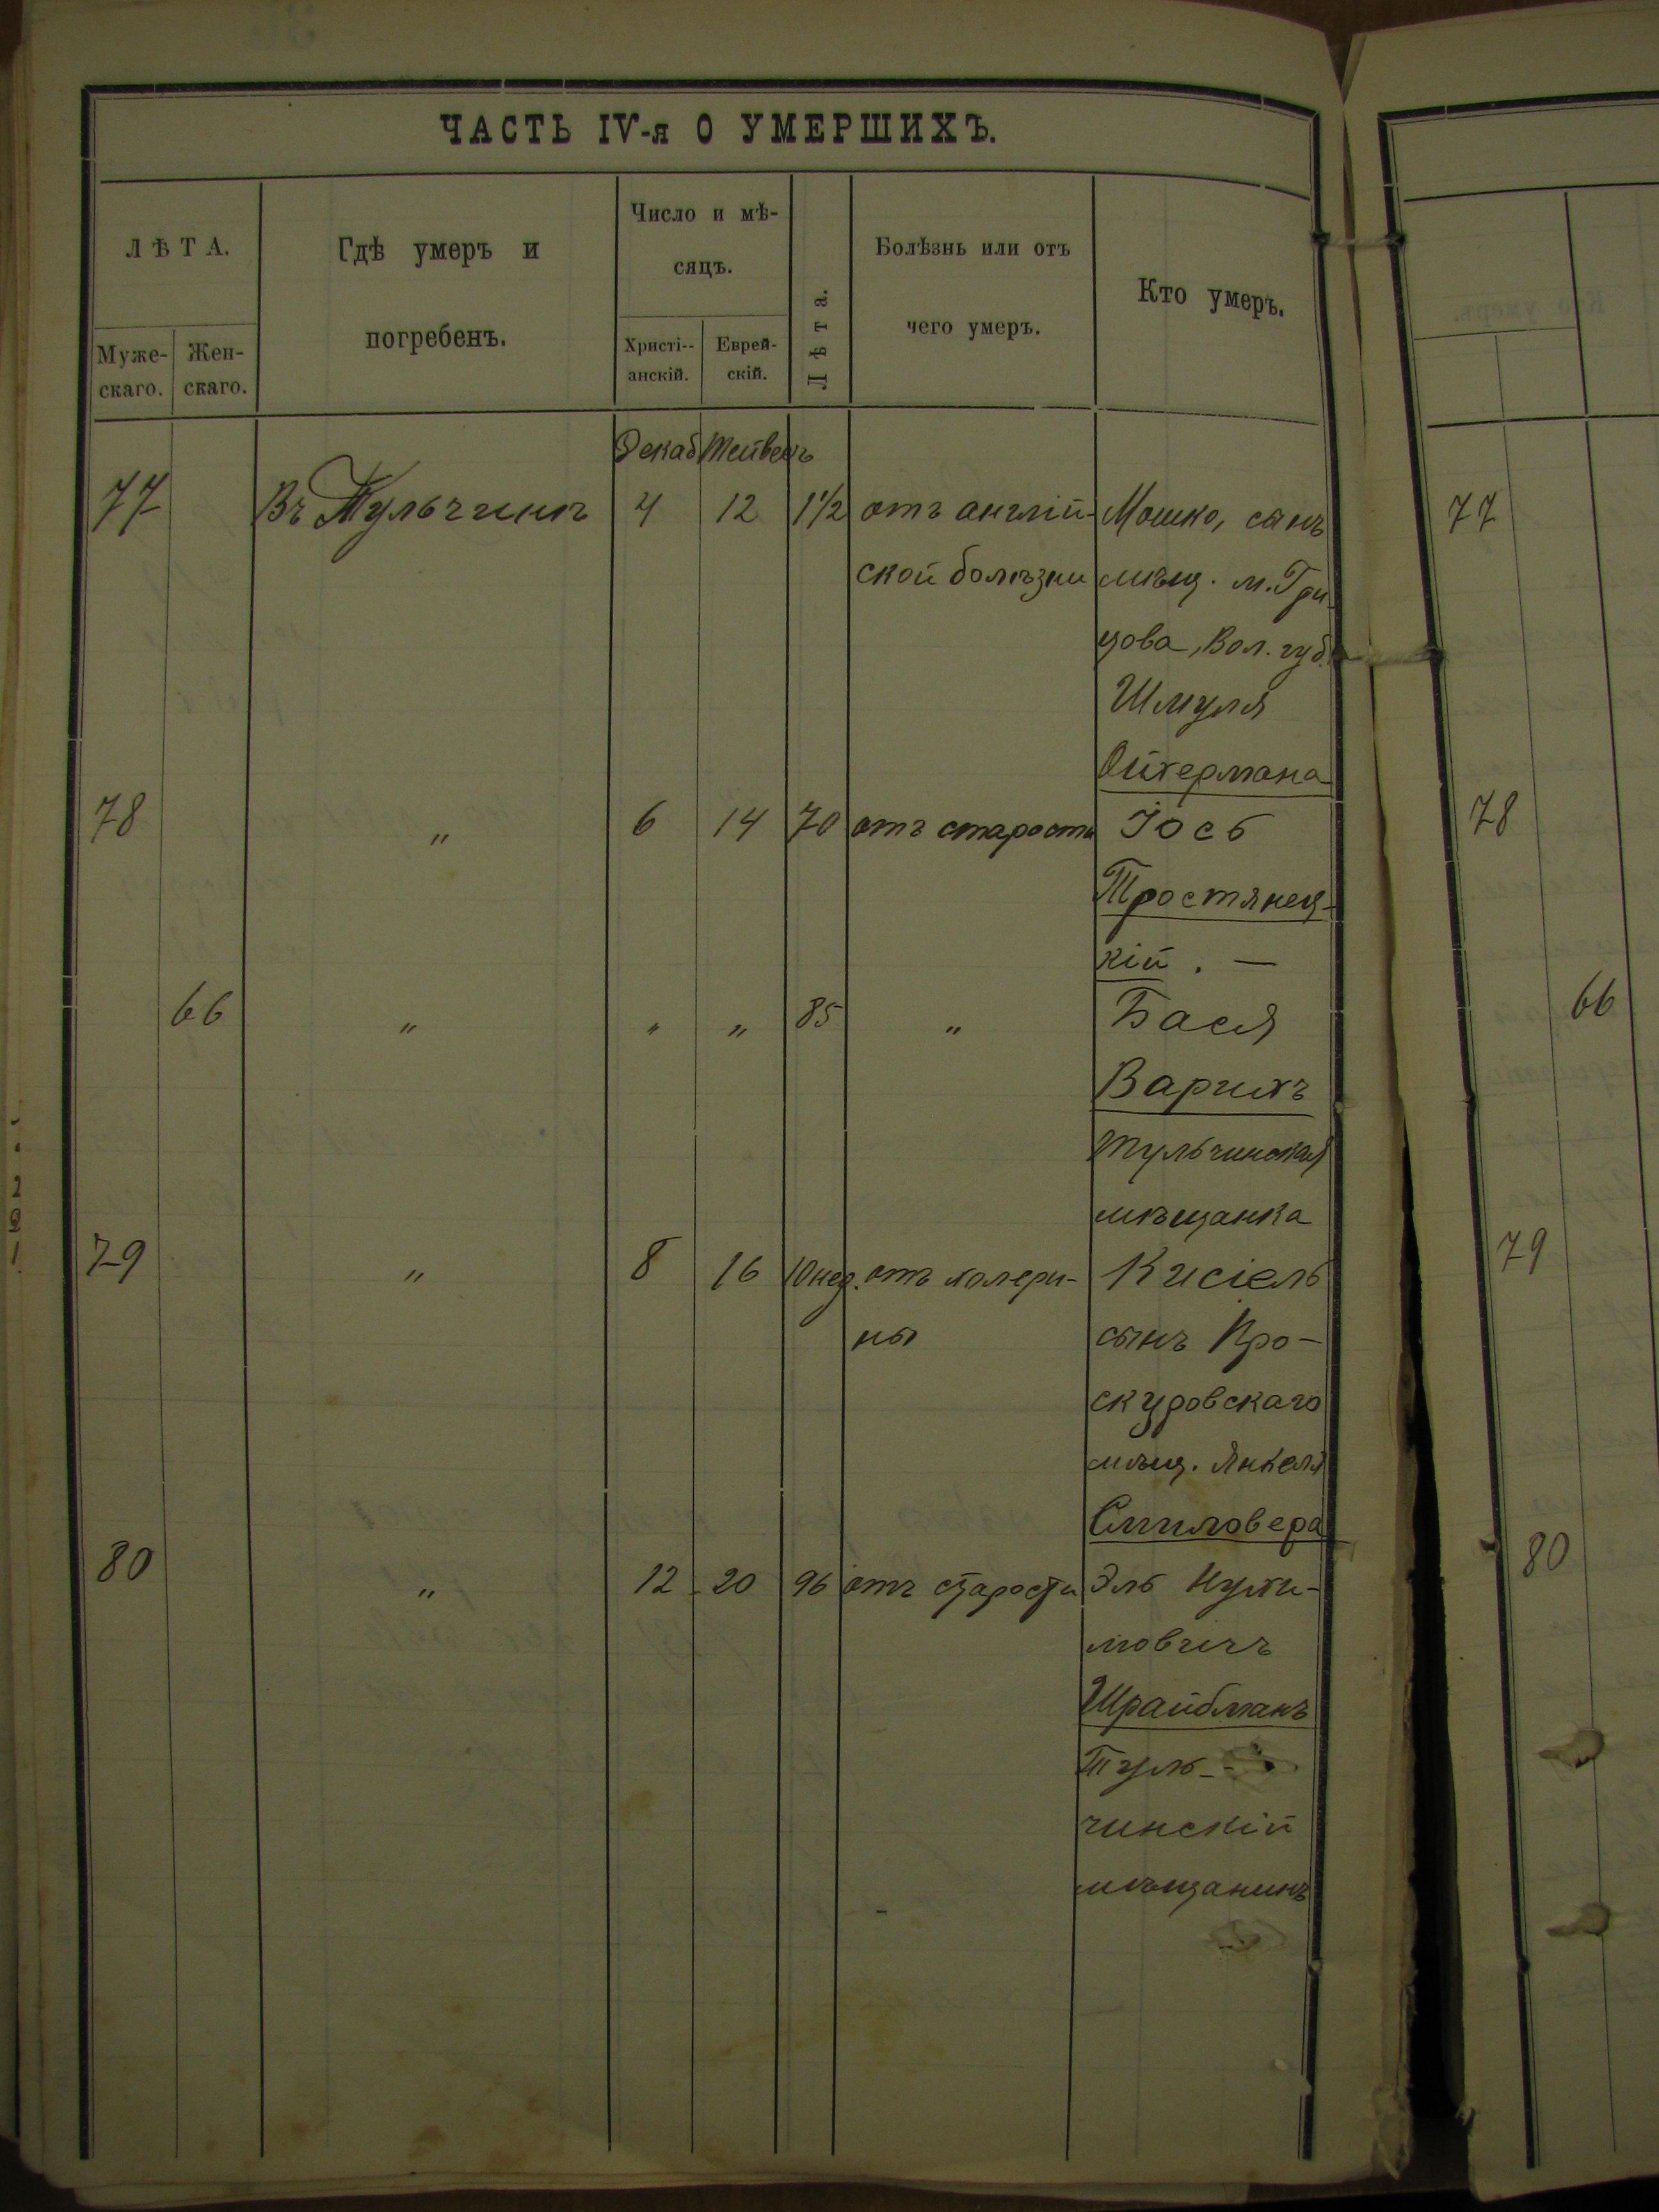 ЧАСТЬ IV-я О УМЕРШИХЪ.
ЛѢТА.
Муже-
скаго.
Жен-
скаго.
Гдѣ умеръ и
погребенъ.
Число и мѣ-
сяцъ.
Христі--
анскій.
Еврей-
скій.
Лѣта.
Болѣзнь или отъ
чего умеръ.
Кто умеръ.
Декаб Тейвесъ
77 Въ Тульчинѣ 4 12 1 1/2 отъ англій- Мошко, сынъ 77
ской болѣзни мѣщ. м. Гри-
цова, Вол. губ.
Шмуля
Ойхермана
78 " 6 14 70 отъ старости Іось 78
Тростянец-
кій. —
66 " " " 85 " Бася 66
Варихъ
Тульчинская
мѣщанка
79 " 8 16 10 нед. отъ холери- Кисіель 79
ны сынъ Про-
скуровскаго
мѣщ. Янкеля
Смиловера
80 " 12 20 96 отъ старости Эль Нухи- 80
мовичъ
Шрайбманъ
Туль-
чинскій
мѣщанинъ